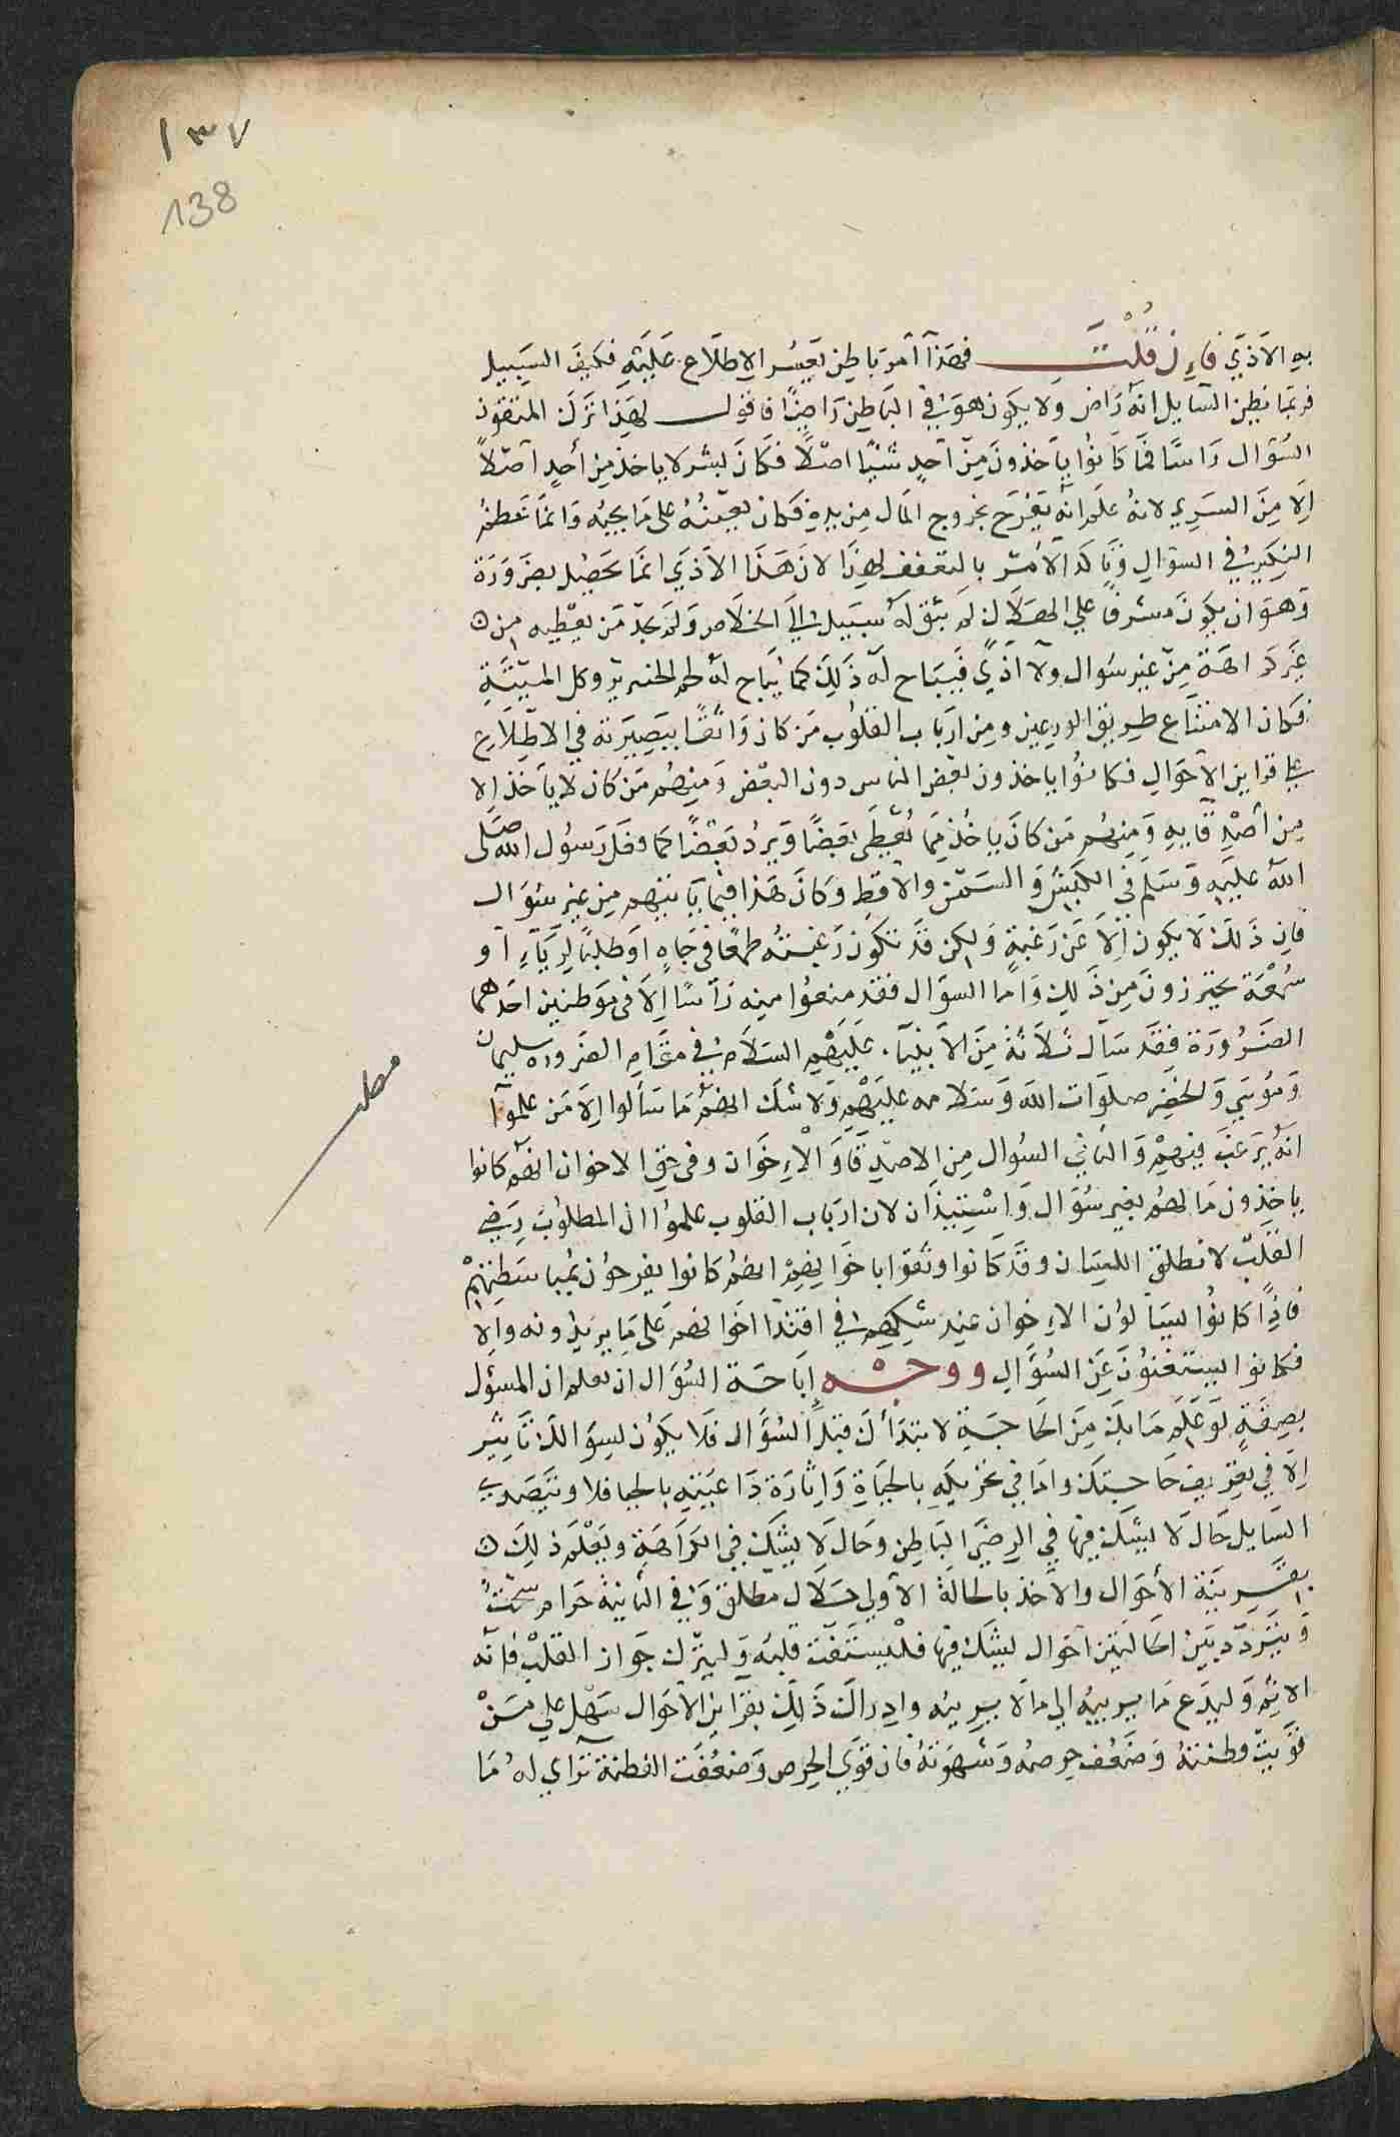 ١٣٧
138
به الاذي فاءن قلت فهذا أمر باطن يعسر الاطلاع عليه فكيف السبيل
فربما يظن السايل انه راض ولا يكون هو في الباطن راضيًا فاقول لهذا ترك المتقون
السؤال راسًا فما كانوا يأخذون من أحد شئيًا اصلًا فكان بشر لا ياخذ من أحد أصلًا
الا من السري لانه علم انه يفرح بخروج المال من يده فكان يعينه على ما يحبه وانما عظم
النكير في السؤال وتأكد الأمر بالتعفف لهذا لان هذا الاذي انما يحصل بضرورة
وهو ان يكون مشرفًا علي الهلاك لم يبق له سبيل الي الخلاص ولم يجد من يعطيه من
غير كراهة من غير سؤال ولا اذي فيباح له ذلك كما يباح له لحم الخنزير وكل الميتة
فكان الامتناع طريق الورعين ومن ارباب القلوب من كان واثقًا ببصيرته في الاطلاع
علي قراين الاحوال فكانوا ياخذون بعض الناس دون البعض ومنهم من كان لا يأخذ الا
من أصدقايه ومنهم من كان ياخذ مما يعطى بعضًا ويرد بعضًا كما فعل رسول الله صلى
الله عليه وسلم في الكبش والسمن والاقط وكان هذا فيما ياتيهم من غير سؤال
فان ذلك لا يكون الا عن رغبة ولكن قد تكون رغبته طمعًا في جاه او طلبًا لرياء أو
سمعة يحترزون من ذلك واما السؤال فقد منعوا منه راسًا الا في موطنين احدهما
الضرورة فقد سأل ثلاثة من الانبياء عليهم السلام في مقام الضروره سليمان
وموسى والخضر صلوات الله وسلامه عليهم ولا شك انهم ما سألوا الا من علموا
مطلب
انه يرغب فيهم والثاني السؤال من الاصدقا والاءخوان وفي حق الاخوان انهم كانوا
ياخذون ما لهم بغير سؤال واستيذان لان ارباب القلوب علموا ان المطلوب رضي
القلب لا نطلق اللسان وقد كانوا وثقوا باخوانهم انهم كانوا يفرحون بمباسطتهم
فاذًا كانوا يسالون الاءخوان عند شكهم في اقتدا اخوانهم على ما يريدونه والا
فكانوا يستغنون عن السؤال ووجه إباحة السؤال ان تعلم ان المسؤل
بصفة لو علم ما بك من الحاجة لابتدأك فبلا السؤال فلا يكون لسؤالك تأثير
الا في تعريف حاجتك واما في تحريكه بالحياة واثارة داعيته بالحيا فلا ويتصدي
السايل حال لا يشك فيها في الرضي الباطن وحال لا يشك في الكراهة ويعلم ذلك
بقرينة الأحوال والأخذ بالحالة الأولي حلال مطلق وفي الثانية حرام سحت
ويتردد بين الحالتين احوال يشك فيها فليستفت قلبه وليترك جواز القلب فانه
الاثم وليدع ما يريبه الي ما لا يريبه وادراك ذلك بقراين الأحوال سهل علي من
قويت فطنته وضعف حرصه وشهوته فان قوي الحرص وضعفت الفطنة تراي له ما